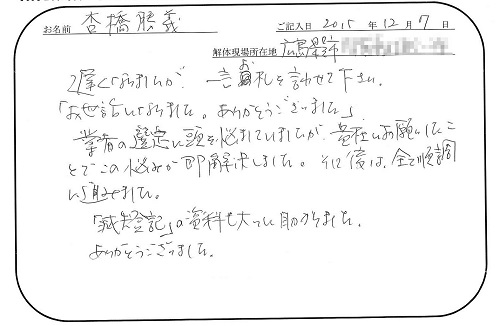 お名前 杏橋勝義 ご記入日 2015年12月7日
解体現場所在地 広島県
遅くなりましたが 一言お礼を言わせて下さい。
「お世話になりました。ありがとうございました」
業者の選定に頭を悩ましていましたが、貴社にお願いしたこ
とでこの悩みが即解決しました。その後は、全て順調
に進みました。
「滅失登記」の資料も大いに助かりました。
ありがとうございました。